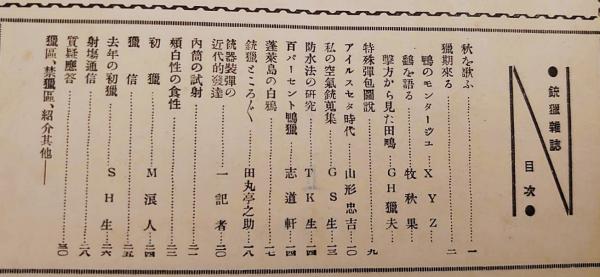 ●銃獵雜誌
目次●
秋を歌ふ……一
獵期來る……二
鴨のモンタージユ……XYZ
鶴を語る……牧秋果
擊方から見た田鴫……GH獵夫
特殊彈包圖說……九
アイルスセタ時代……山形忠吉…一〇
私の空氣銃蒐集……GS生…一三
防水法の硏究……TK生…一四
百パーセント鴨獵……志道軒…一四
蓬萊島の白鴉……一七
銃獵ところ〴〵……田丸亭之助…一八
銃器裝彈の
近代的發達……一記者…二〇
內筒の試射……二二
頰白性の食性……二三
初獵……M浪人…二四
獵信……二五
去年の初獵……SH生…二六
射塲通信……二八
質疑應答……三〇
獵區、禁獵區、紹介其他――